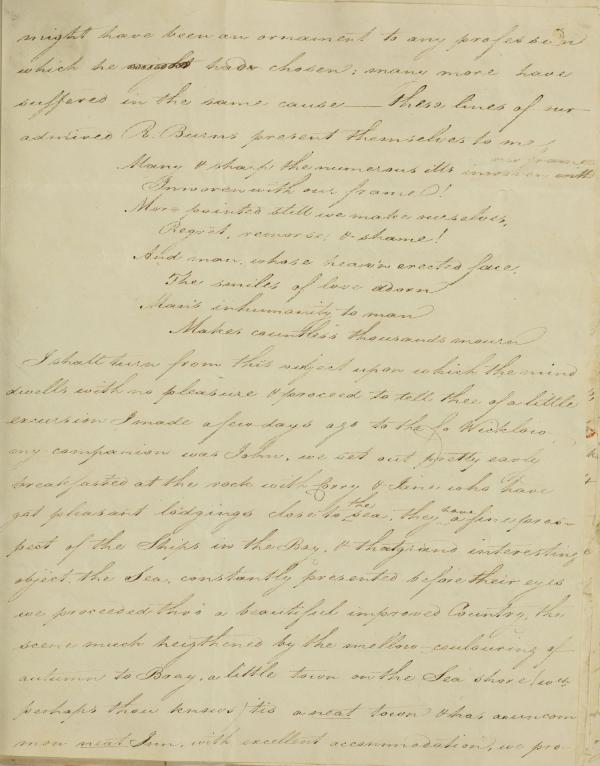 might have been an ornament to any profession
which he might had chosen; many more have
suffered in the same cause — these lines of our
admired R. Burns present themselves to me,
Many & sharp the numerous ills inwoven with
our frame
Inwoven with our frame!
More pointed still we make ourselves,
Regret, remorse, & shame!
And man, whose heav'n erected face,
The smiles of love adorn
Man's inhumanity to man
Makes countless thousands mourn
I shall turn from this subject upon which the mind
dwells with no pleasure & proceed to tell thee of a little
excursion I made a few days ago to the Co Wicklow,
my companion was John, we set out pretty early
breakfasted at the rock with & Jane who have
got pleasant lodgings close to the sea, they have a fine pros-
pect of the Ships in the Bay, & that grand interesting
object, the Sea, constantly presented before their eyes
we proceeded thro' a beautiful improved Country, the
scene much heigthened by the mellow coulouring of
autumn to Bray, a little town on the Sea shore (wch
perhaps thou knows) tis a neat town & has an uncom
mon neat Inn, with excellent accommodation, we pro-